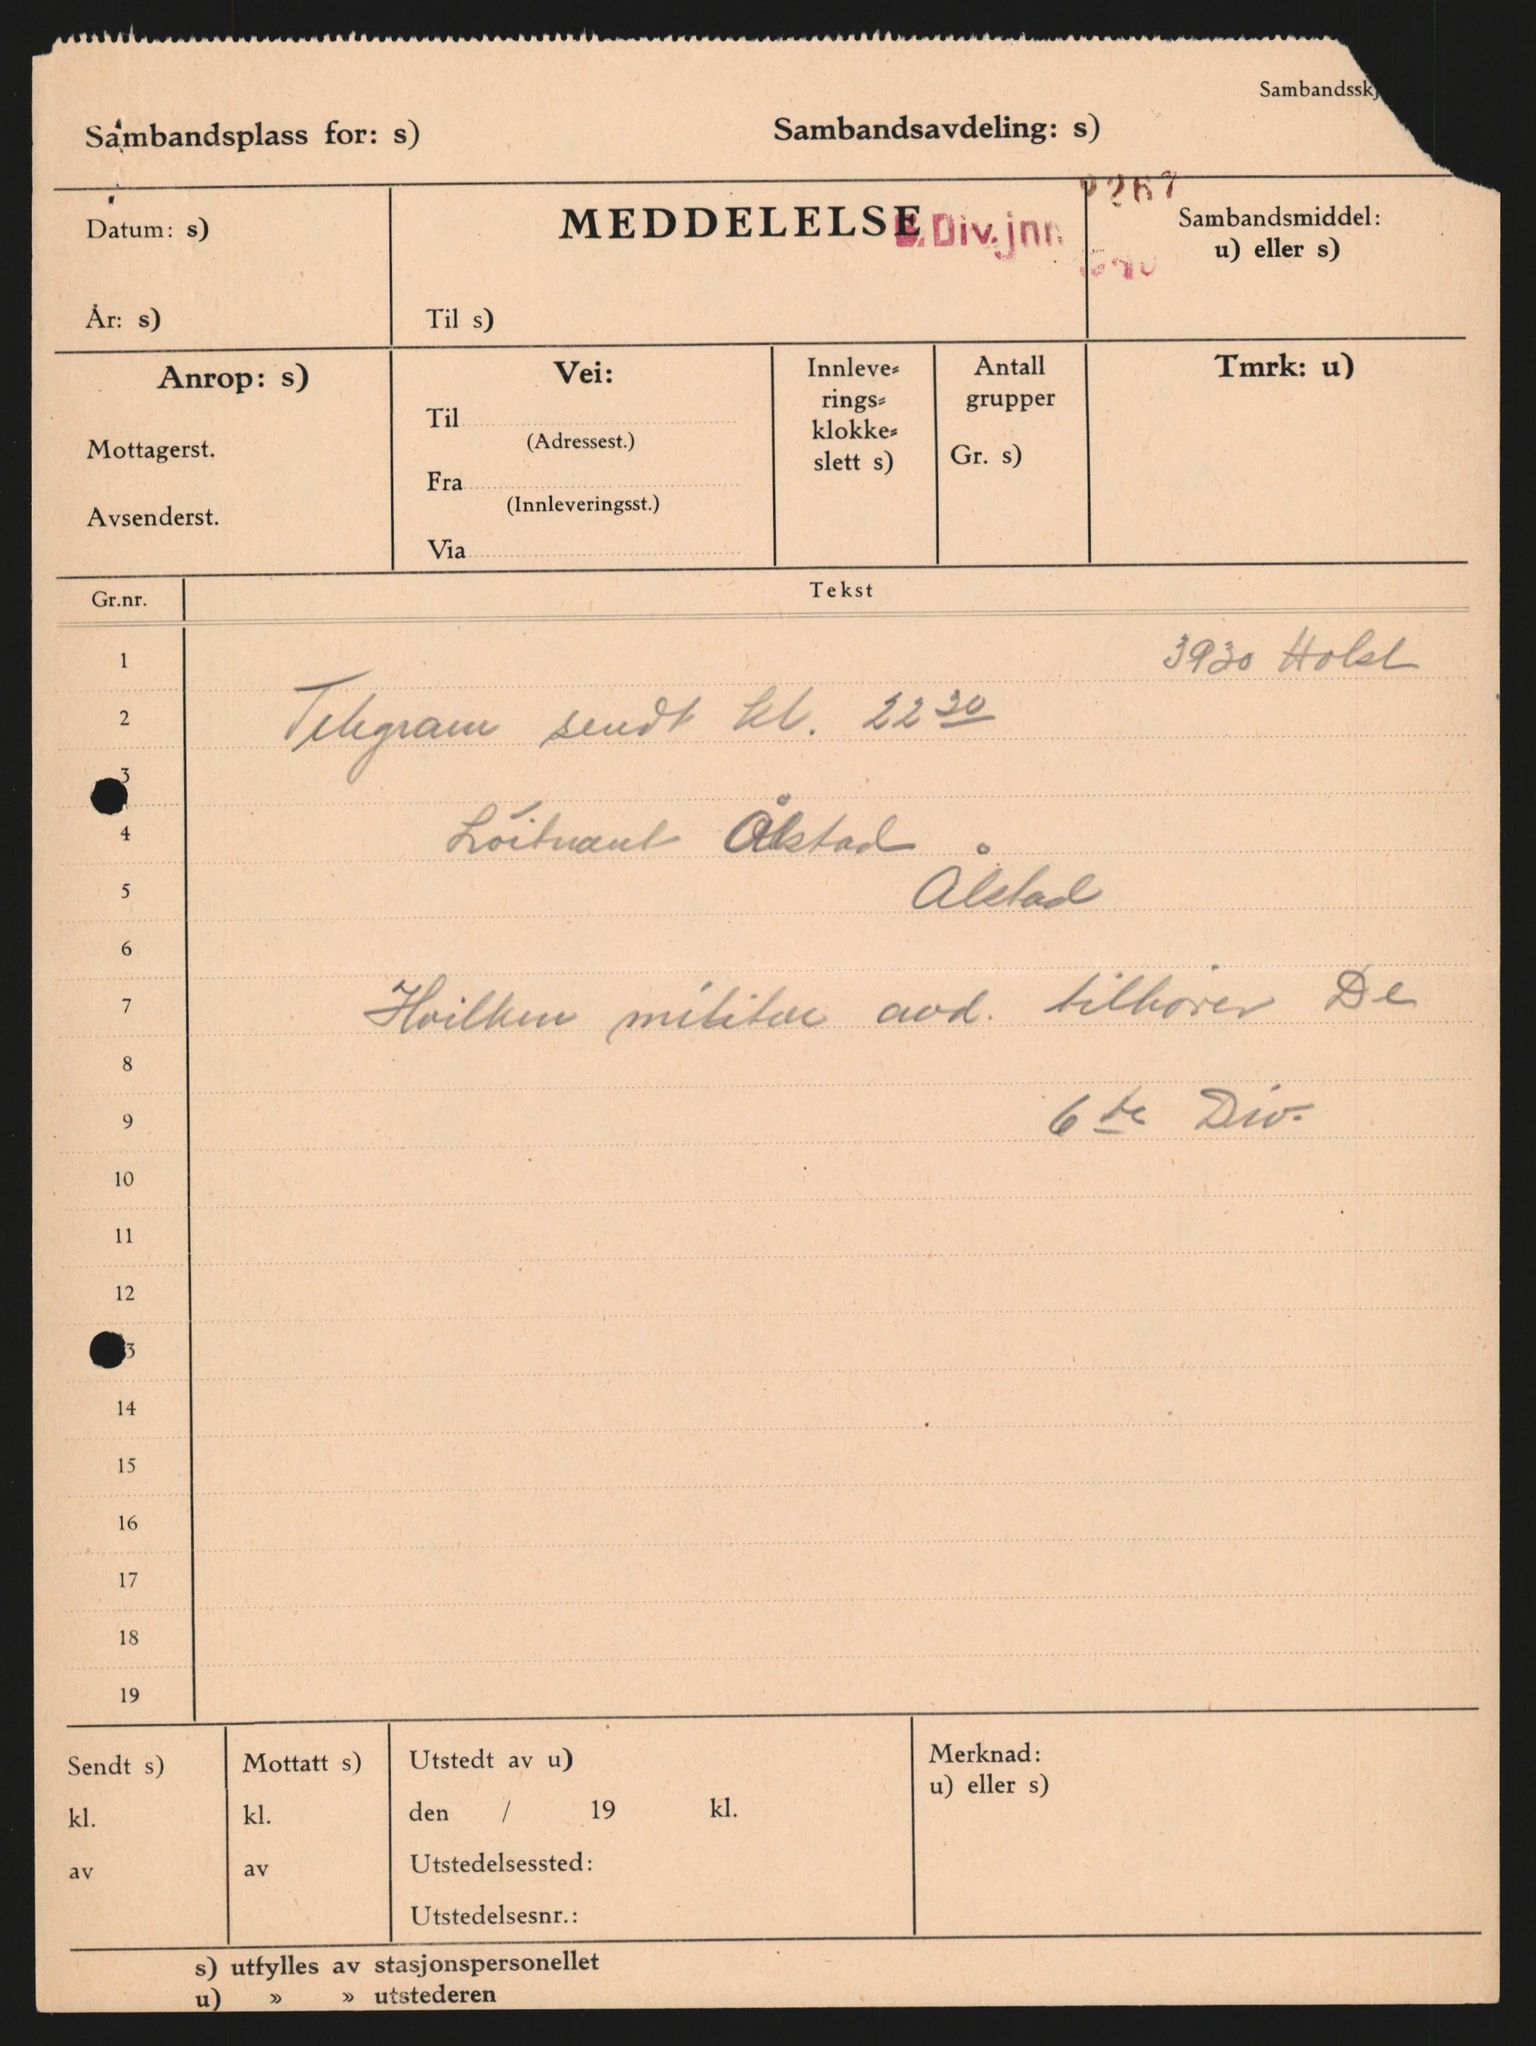 Sambandsplass for: s)
Sambandsavdeling: s)
Datum: s)
År: s)
MEDDELELSE
Div.jnr.
Til s)
Sambandsmiddel:
u) eller s)
Anrop: s)
Mottagerst.
Avsenderst.
Vei:
Til
(Adressest.)
Fra
(Innleveringsst.)
Via
Innleve=
rings=
klokke=
slett s)
Antall
grupper
Gr. s)
Tmrk: u)
Gr.nr.
Tekst
1 3930 Holst
2 Telegram sendt kl. 22 30
3
4 Löitnant Ålstad
5 Ålstad
6
7 Hvilken militær avd. tilhører De
8
9 6te Div.
10
11
12
13
14
15
16
17
18
19
Sendt s)
kl.
av
Mottatt s)
kl.
av
Utstedt av u)
den / 19 kl.
Utstedelsessted:
Utstedelsesnr.:
Merknad:
u) eller s)
s) utfylles av stasjonspersonellet
u) » » utstederen